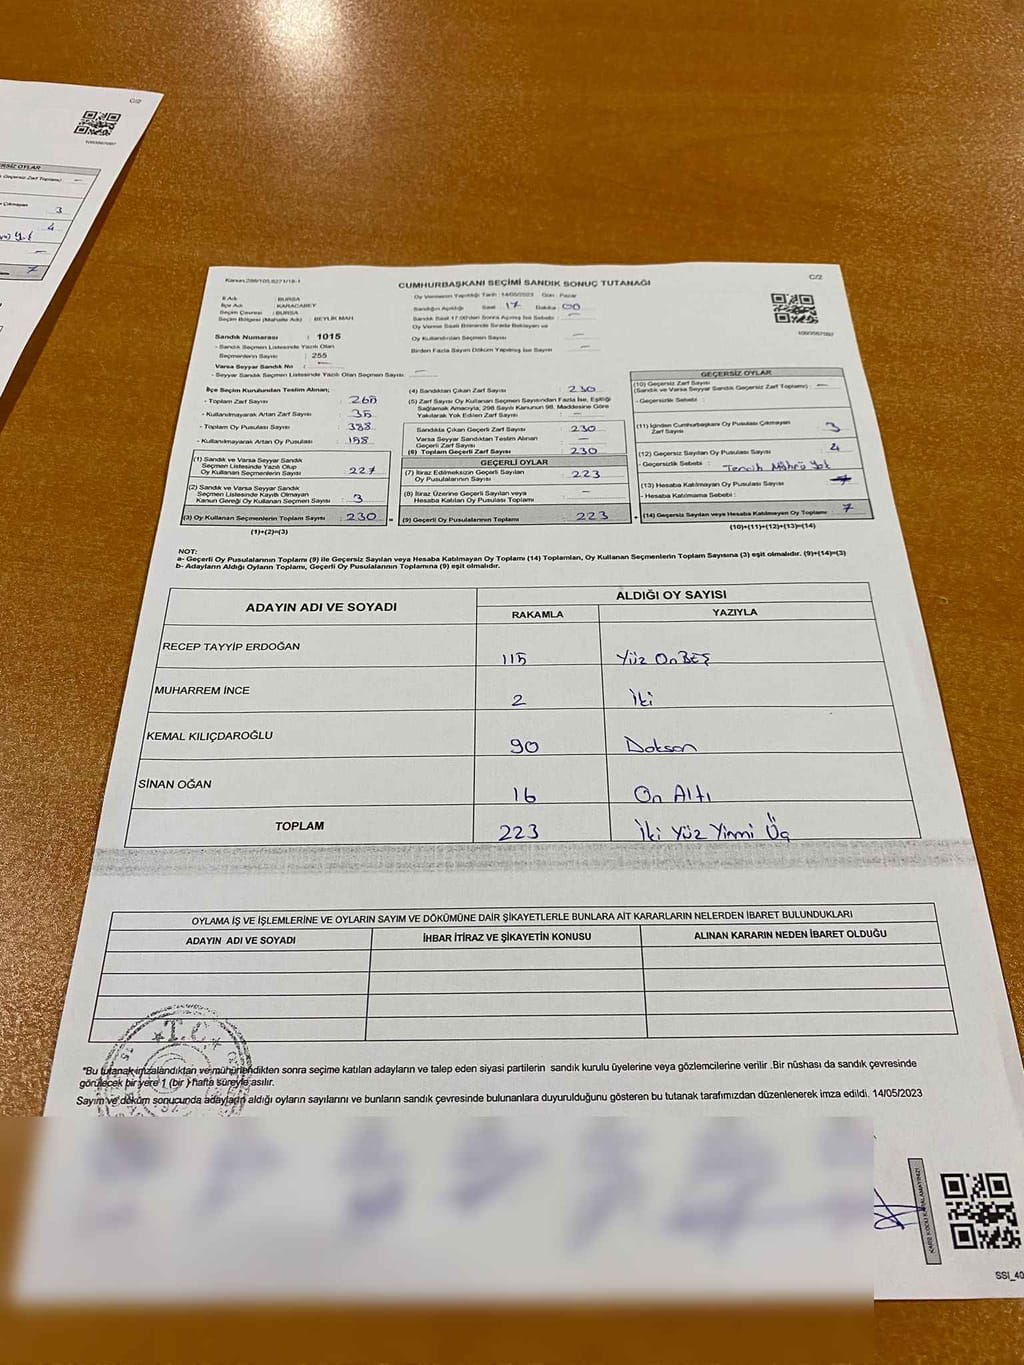 C/2
1093567097
ERSİZ OYLAR
Geçersiz Zarf Toplamı) —
3
4
—
7
Kanun:298/105,6271/18-1
CUMHURBAŞKANI SEÇİMİ SANDIK SONUÇ TUTANAĞI
C/2
1093567097
İl Adı : BURSA
İlçe Adı : KARACABEY
Seçim Çevresi : BURSA
Seçim Bölgesi (Mahalle Adı) : BEYLİK MAH.
Sandık Numarası : 1015
- Sandık Seçmen Listesinde Yazılı Olan
Seçmenlerin Sayısı : 255
Varsa Seyyar Sandık No : —
- Seyyar Sandık Seçmen Listesinde Yazılı Olan Seçmen Sayısı : —
Oy Vermenin Yapıldığı Tarih : 14/05/2023 Gün : Pazar
Sandığın Açıldığı Saat : 17 Dakika : 00
Sandık Saat 17:00'den Sonra Açılmış İse Sebebi : —
Oy Verme Saati Bitiminde Sırada Bekleyen ve
Oy Kullandırılan Seçmen Sayısı : —
Birden Fazla Sayım Döküm Yapılmış İse Sayısı : —
İlçe Seçim Kurulundan Teslim Alınan;
- Toplam Zarf Sayısı : 265
- Kullanılmayarak Artan Zarf Sayısı : 35
- Toplam Oy Pusulası Sayısı : 388
- Kullanılmayarak Artan Oy Pusulası : 158
(1) Sandık ve Varsa Seyyar Sandık
Seçmen Listesinde Yazılı Olup
Oy Kullanan Seçmenlerin Sayısı : 227
(2) Sandık ve Varsa Seyyar Sandık
Seçmen Listesinde Kayıtlı Olmayan
Kanun Gereği Oy Kullanan Seçmen Sayısı : 3
(3) Oy Kullanan Seçmenlerin Toplam Sayısı : 230
(1)+(2)=(3)
(4) Sandıktan Çıkan Zarf Sayısı : 230
(5) Zarf Sayısı Oy Kullanan Seçmen Sayısından Fazla İse, Eşitliği
Sağlamak Amacıyla, 298 Sayılı Kanunun 98. Maddesine Göre
Yakılarak Yok Edilen Zarf Sayısı : —
Sandıkta Çıkan Geçerli Zarf Sayısı : 230
Varsa Seyyar Sandıktan Teslim Alınan
Geçerli Zarf Sayısı : —
(6) Toplam Geçerli Zarf Sayısı : 230
GEÇERLİ OYLAR
(7) İtiraz Edilmeksizin Geçerli Sayılan
Oy Pusulalarının Sayısı : 223
(8) İtiraz Üzerine Geçerli Sayılan veya
Hesaba Katılan Oy Pusulası Toplamı : —
(9) Geçerli Oy Pusulalarının Toplamı : 223
GEÇERSİZ OYLAR
(10) Geçersiz Zarf Sayısı
(Sandık ve Varsa Seyyar Sandık Geçersiz Zarf Toplamı) : —
- Geçersizlik Sebebi :
(11) İçinden Cumhurbaşkanı Oy Pusulası Çıkmayan
Zarf Sayısı : 3
(12) Geçersiz Sayılan Oy Pusulası Sayısı : 4
- Geçersizlik Sebebi : Tercih Mührü Yok
(13) Hesaba Katılmayan Oy Pusulası Sayısı :
- Hesaba Katılmama Sebebi :
(14) Geçersiz Sayılan veya Hesaba Katılmayan Oy Toplamı : 7
(10)+(11)+(12)+(13)=(14)
NOT:
a- Geçerli Oy Pusulalarının Toplamı (9) ile Geçersiz Sayılan veya Hesaba Katılmayan Oy Toplamı (14) Toplamları, Oy Kullanan Seçmenlerin Toplam Sayısına (3) eşit olmalıdır. (9)+(14)=(3)
b- Adayların Aldığı Oyların Toplamı, Geçerli Oy Pusulalarının Toplamına (9) eşit olmalıdır.
ADAYIN ADI VE SOYADI
ALDIĞI OY SAYISI
RAKAMLA YAZIYLA
RECEP TAYYİP ERDOĞAN 115 Yüz On BEŞ
MUHARREM İNCE 2 İki
KEMAL KILIÇDAROĞLU 90 Doksan
SİNAN OĞAN 16 On Altı
TOPLAM 223 İki Yüz Yirmi Üç
OYLAMA İŞ VE İŞLEMLERİNE VE OYLARIN SAYIM VE DÖKÜMÜNE DAİR ŞİKAYETLERLE BUNLARA AİT KARARLARIN NELERDEN İBARET BULUNDUKLARI
ADAYIN ADI VE SOYADI İHBAR İTİRAZ VE ŞİKAYETİN KONUSU ALINAN KARARIN NEDEN İBARET OLDUĞU
T.C.
*Bu tutanak imzalandıktan ve mühürlendikten sonra seçime katılan adayların ve talep eden siyasi partilerin sandık kurulu üyelerine veya gözlemcilerine verilir .Bir nüshası da sandık çevresinde
görülecek bir yere 1 (bir ) hafta süreyle asılır.
Sayım ve döküm sonucunda adayların aldığı oyların sayılarını ve bunların sandık çevresinde bulunanlara duyurulduğunu gösteren bu tutanak tarafımızdan düzenlenerek imza edildi. 14/05/2023
KARE KODU KAPALAMAYINIZ!
SSI_40